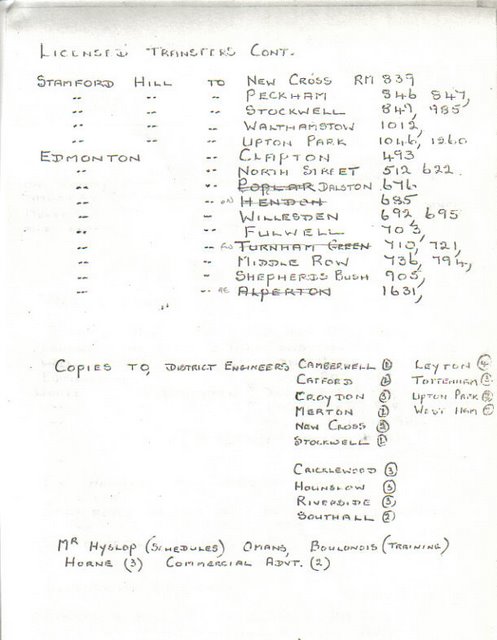 LICENSED TRANSFERS CONT.
STAMFORD HILL TO NEW CROSS RM 839
" " " PECKHAM 846 847,
" " " STOCKWELL 849, 985,
" " " WALTHAMSTOW 1012,
" " " UPTON PARK 1046, 1260
EDMONTON " CLAPTON 493
" " NORTH STREET 512 622.
" " POPLAR DALSTON 676
" " ON HENDON 685
" " WILLESDEN 692, 695
" " FULWELL 703,
" " TURNHAM GREEN 710, 721,
" " MIDDLE ROW 736, 794,
" " SHEPHERDS BUSH 905,
" " ALPERTON 1631,
COPIES TO, DISTRICT ENGINEERS CAMBERWELL LEYTON
CATFORD TOTTENHAM
CROYDON (3) UPTON PARK
MERTON (1) WEST HAM
NEW CROSS (2)
STOCKWELL (1)
CRICKLEWOOD (3)
HOUNSLOW (3)
RIVERSIDE (3)
SOUTHALL (2)
MR HYSLOP (SCHEDULES) OMANS, BOULONOIS (TRAINING)
HORNE (3) COMMERCIAL ADVT. (2)